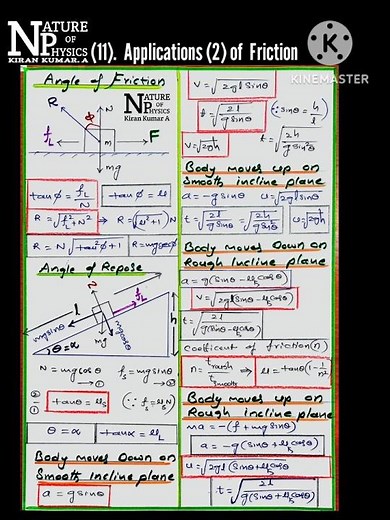 NATURE
OF
PHYSICS
KIRAN KUMAR.A
(11). Applications (2) of Friction
K
KINEMASTER
Angle of Friction
NATURE
OF
PHYSICS
Kiran Kumar A
R
N
φ
fL
m
F
mg
tanφ = fL/N
tanφ = μ
R = √(fL²+N²) ⇒ R = √(μ²+1) N
R = N√(tan²φ+1)
R = mg secφ
Angle of Repose
N
fL
l
h
mg sinθ
mg
mg cosθ
θ = α
N = mg cosθ → ①
fs = mg sinθ → ②
②/①
tanθ = μs
(∵ fs = μsN)
θ = α
tanα = μL
Body moves Down on
Smooth incline plane
a = g sinθ
V = √(2gl sinθ)
t = √(2l/(g sinθ))
(∵ sinθ = h/l)
V = √(2gh)
t = √(2h/(g sin²θ))
Body moves up on
Smooth incline plane
a = -g sinθ
u = √(2gl sinθ)
t = √(2l/(g sinθ)) = √(2h/(g sin²θ))
u = √(2gh)
Body moves Down on
Rough Incline plane
a = g(sinθ - μk cosθ)
V = √(2gl(sinθ - μk cosθ))
t = √(2l/(g(sinθ - μk cosθ)))
coefficient of friction(n)
n = t rough/t smooth ⇒ μ = tanθ(1 - 1/n²)
Body moves up on
Rough incline plane
ma = -(f + mg sinθ)
a = -g(sinθ + μk cosθ)
u = √(2gl(sinθ + μk cosθ))
t = √(2l/(g(sinθ + μk cosθ)))